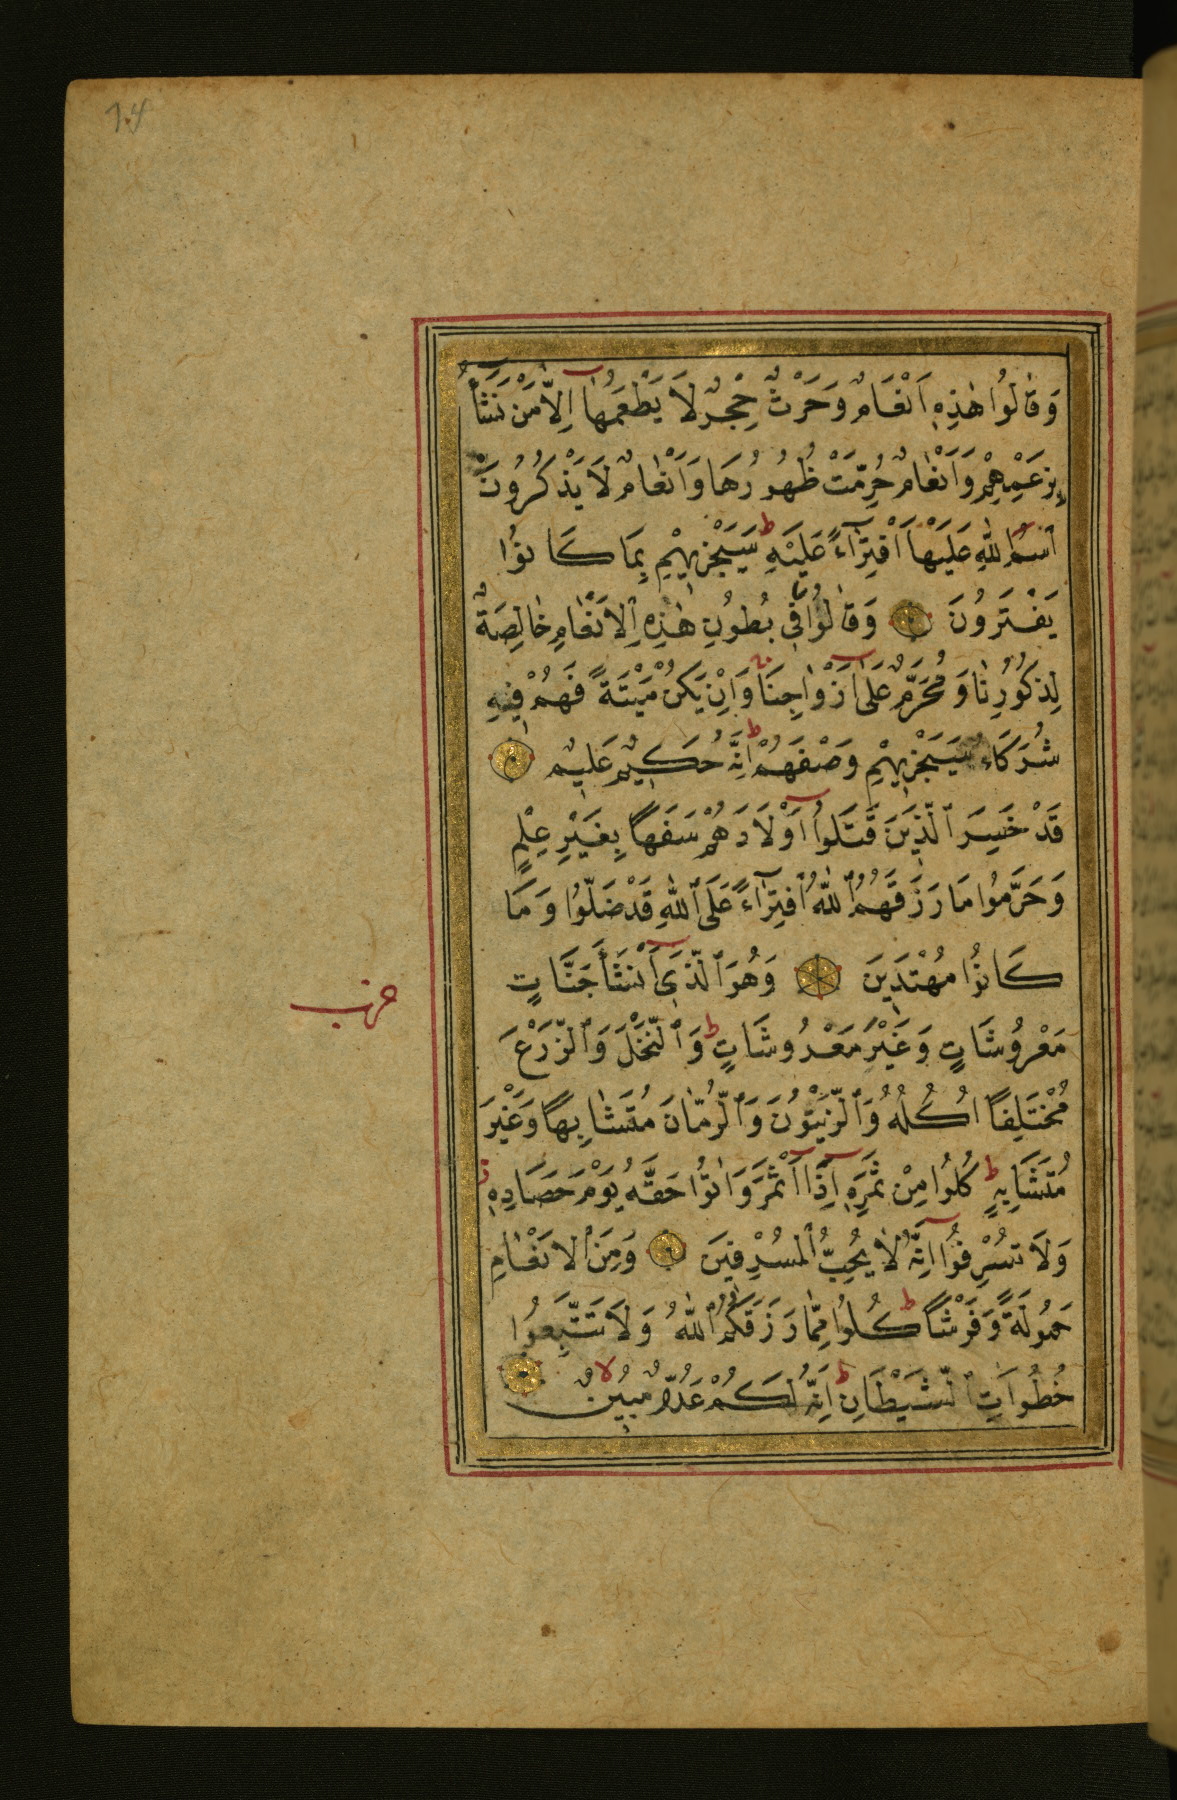 74
وَقَالُوا هٰذِهِ اَنْعَامٌ وَحَرْثٌ حِجْرٌ لَا يَطْعَمُهَا اِلَّا مَنْ نَشَاءُ
بِزَعْمِهِمْ وَاَنْعَامٌ حُرِّمَتْ ظُهُورُهَا وَاَنْعَامٌ لَا يَذْكُرُونَ
ٱسْمَ ٱللّٰهِ عَلَيْهَا ٱفْتِرَٓاءً عَلَيْهِ ط سَيَجْزِيهِمْ بِمَا كَانُوا
يَفْتَرُونَ وَقَالُوا مَا فِي بُطُونِ هٰذِهِ ٱلْاَنْعَامِ خَالِصَةٌ
لِذُكُورِنَا وَمُحَرَّمٌ عَلٰٓى اَزْوَاجِنَا وَاِنْ يَكُنْ مَيْتَةً فَهُمْ فِيهِ
شُرَكَاءُ سَيَجْزِيهِمْ وَصْفَهُمْ ط اِنَّهُ حَكِيمٌ عَلِيمٌ
قَدْ خَسِرَ ٱلَّذِينَ قَتَلُوا اَوْلَادَهُمْ سَفَهًا بِغَيْرِ عِلْمٍ
وَحَرَّمُوا مَا رَزَقَهُمُ ٱللّٰهُ ٱفْتِرَٓاءً عَلَى ٱللّٰهِ قَدْ ضَلُّوا وَمَا
كَانُوا مُهْتَدِينَ وَهُوَ ٱلَّذِٓي اَنْشَأَ جَنَّاتٍ
حزب
مَعْرُوشَاتٍ وَغَيْرَ مَعْرُوشَاتٍ ط وَٱلنَّخْلَ وَٱلزَّرْعَ
مُخْتَلِفًا اُكُلُهُ وَٱلزَّيْتُونَ وَٱلرُّمَّانَ مُتَشَابِهًا وَغَيْرَ
مُتَشَابِهٍ ط كُلُوا مِنْ ثَمَرِهِ اِذَٓا اَثْمَرَ وَاٰتُوا حَقَّهُ يَوْمَ حَصَادِهِ
وَلَا تُسْرِفُوا اِنَّهُ لَا يُحِبُّ ٱلْمُسْرِفِينَ وَمِنَ ٱلْاَنْعَامِ
حَمُولَةً وَفَرْشًا ط كُلُوا مِمَّا رَزَقَكُمُ ٱللّٰهُ وَلَا تَتَّبِعُوا
خُطُوَاتِ ٱلشَّيْطَانِ ط اِنَّهُ لَكُمْ عَدُوٌّ مُبِينٌ لا